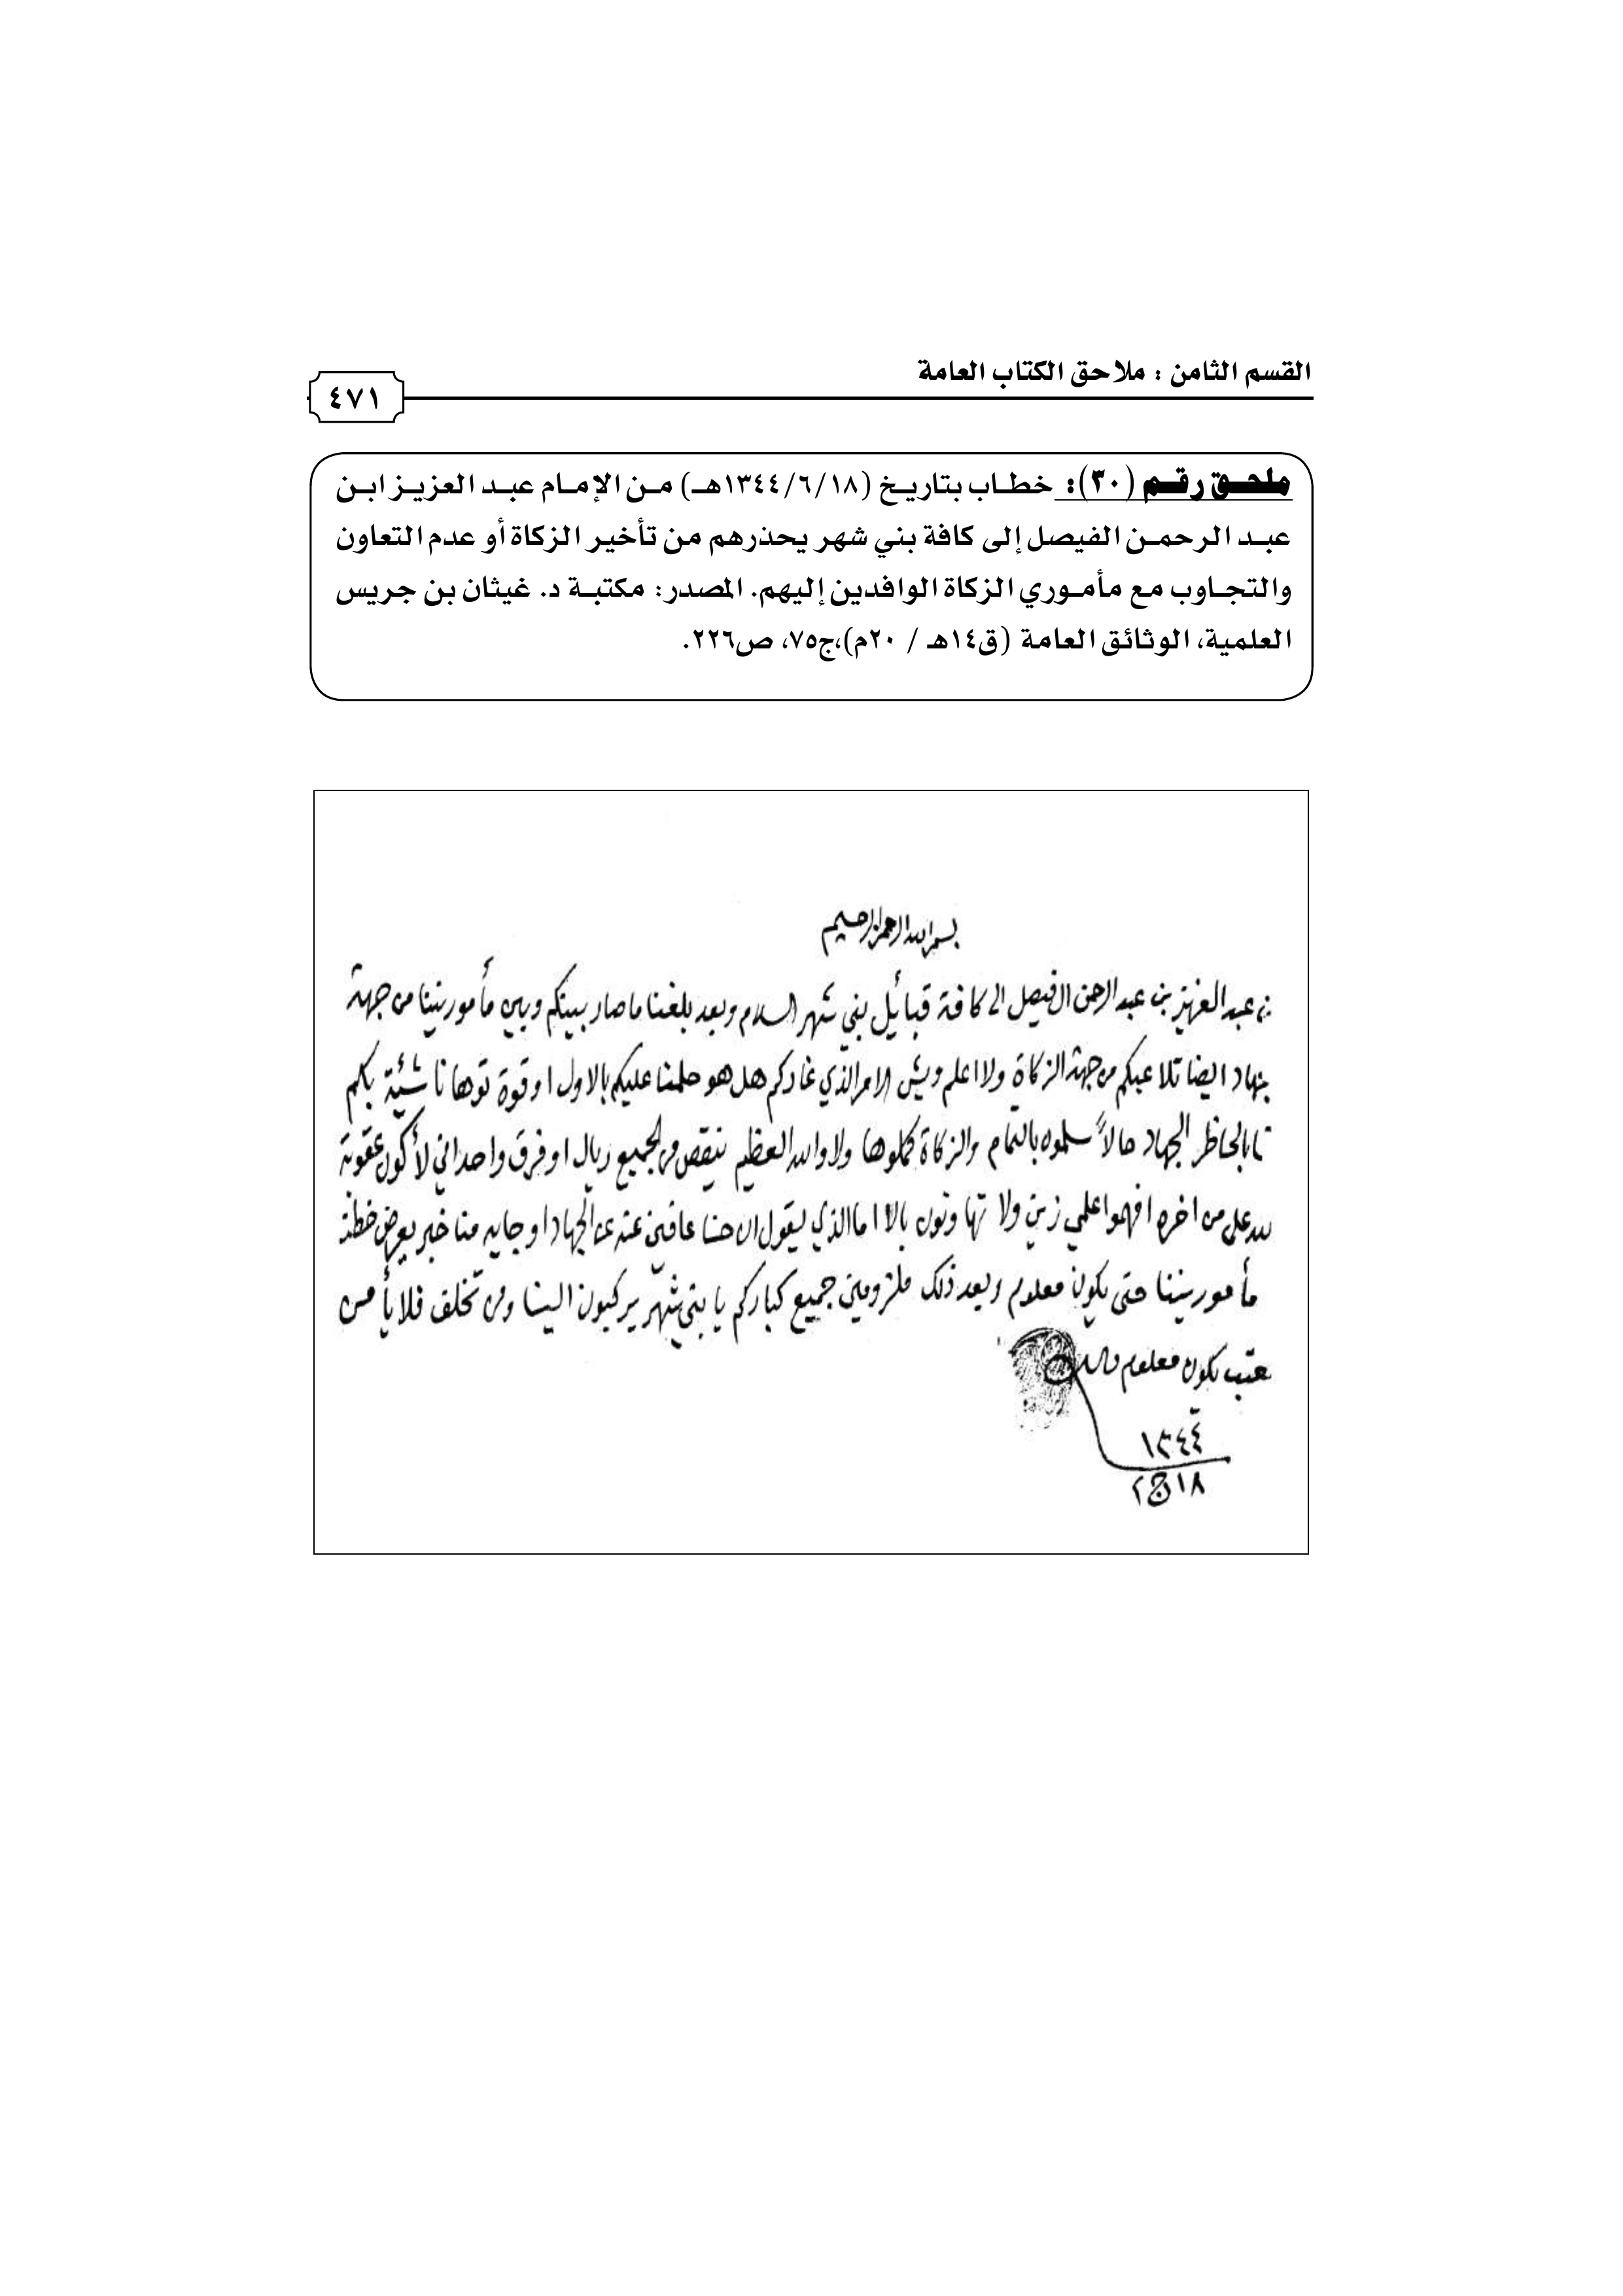 القسم الثامن : ملاحق الكتاب العامة
٤٧١
ملحق رقم (٣٠): خطاب بتاريخ (١٣٤٤/٦/١٨هـ) من الإمام عبد العزيز ابن
عبد الرحمن الفيصل إلى كافة بني شهر يحذرهم من تأخير الزكاة أو عدم التعاون
والتجاوب مع مأموري الزكاة الوافدين إليهم. المصدر: مكتبة د. غيثان بن جريس
العلمية، الوثائق العامة (ق١٤هـ / ٢٠م)،ج٧٥، ص٢٢٦.
بسم الله الرحمن الرحيم
عبد العزيز بن عبد الرحمن الفيصل الى كافة قبائل بني شهر السلام وبعد بلغنا ما صار بينكم وبين مأمورينا من جهة
ايضا تلاعبكم من جهة الزكاة ولا اعلم ويش الامر الذي غادكم هل هو حلمنا عليكم بالاول او قوة توها ناشئة بكم
الجهاد حالاً سلموه بالتمام والزكاة كملوها ولا والله العظيم ينقص من الجميع ريال او فرق واحد اني لأكون عقوبة
على من اخره افهموا علمي زين ولا تهاونون بالا اما الذي يقول ان حنا عافين عنه عن الجهاد او جايه منا خبر يعرض خطنا
مأمورينا حتى يكون معلوم وبعد ذلك ملزومين جميع كباركم يا بني شهر يركبون الينا ومن تخلف فلا يأمن
يكون معلوم والسلام
١٣٤٤
١٨ ج ٢